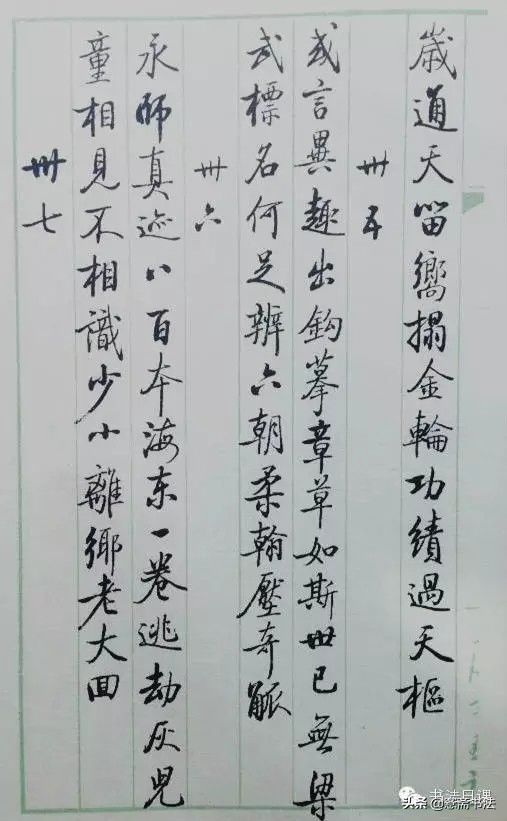 歲通天留嚮搨金輪功績過天樞
卅五
或言異趣出鈎摹章草如斯世已無梁
武標名何足辨六朝柔翰壓奇觚
卅六
永師真迹八百本海东一卷逃劫灰兒
童相見不相識少小離鄉老大囬
卅七
书法日课
头条